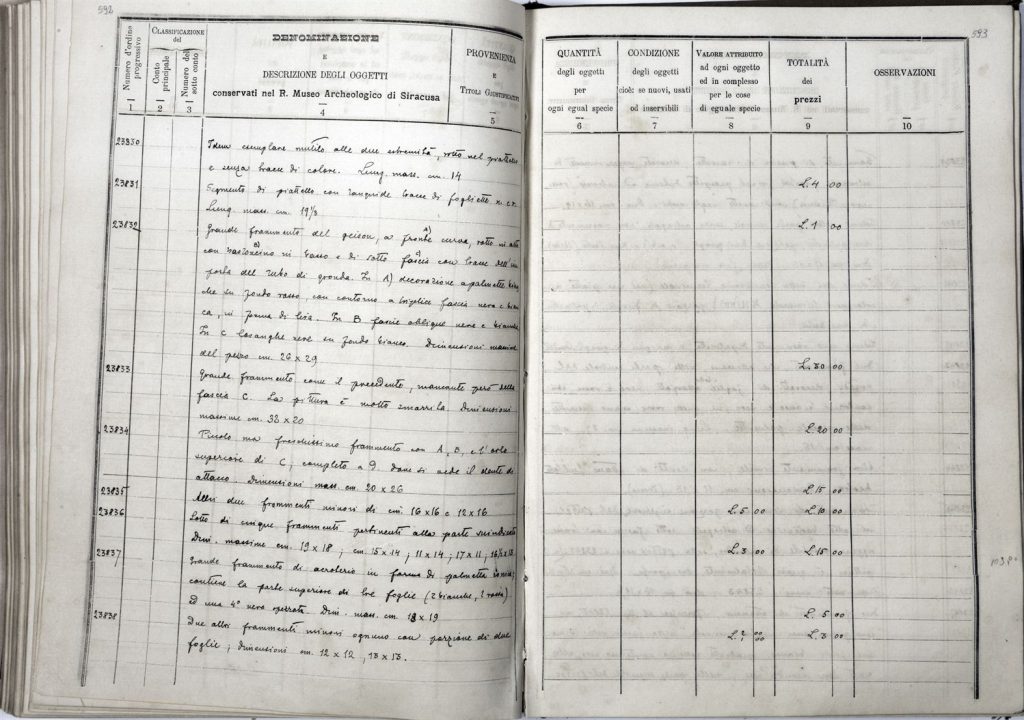 592
Numero d'ordine progressivo
1
CLASSIFICAZIONE del
Conto principale
2
Numero del sotto conto
3
DENOMINAZIONE
E
DESCRIZIONE DEGLI OGGETTI
conservati nel R. Museo Archeologico di Siracusa
4
PROVENIENZA
E
TITOLI GIUSTIFICATIVI
5
23830
Idem esemplare mutilo alle due estremità, rotto nel piattello
e senza tracce di colore. Lung. mass. cm. 14
23831
Segmento di piattello con languide tracce di fogliette n. e r.
Lung. mass. cm. 19 1/2
23832
Grande frammento del geison, a fronte A) curva, rotto in alto
con bastoncino B) in basso e di sotto fascia C) con tracce dell'im
posta del tubo di gronda. In A) decorazione a palmette bian
che su fondo rosso, con contorno a triplice fascia nera e bian
ca, in forma di lira. In B fascie oblique nere e bianche
In C losanghe nere su fondo bianco. Dimensioni massime
del pezzo cm. 26 x 29
23833
Grande frammento come il precedente, mancante però della
fascia C. La pittura è molto smarrita. Dimensioni
massime cm. 33 x 20
23834
Piccolo ma freschissimo frammento con A, B, e l'orlo
superiore di C; completo a D. dove si vede il dente di
attacco. Dimensioni mass. cm. 20 x 26
23835
Altri due frammenti minori di cm. 16 x 16 e 12 x 16
23836
Lotto di cinque frammenti pertinenti alla parte suindicata
Dim. massime cm. 19 x 18; cm. 15 x 14; 11 x 14; 17 x 11; 16 1/2 x 13
23837
Grande frammento di acroterio in forma di palmetta ionica;
contiene la parte superiore di tre foglie (2 bianche, 1 rossa)
Ed una 4a nera spezzata. Dim. mass. cm. 18 x 19
23838
Due altri frammenti minori ognuno con porzione di due
foglie; dimensioni cm. 12 x 12, 13 x 13.
593
QUANTITÀ
degli oggetti
per
ogni egual specie
6
CONDIZIONE
degli oggetti
cioè: se nuovi, usati
od inservibili
7
VALORE ATTRIBUITO
ad ogni oggetto
ed in complesso
per le cose
di eguale specie
8
TOTALITÀ
dei
prezzi
9
OSSERVAZIONI
10
L. 4 00
L. 1 00
L. 30 00
L. 20 00
L. 15 00
L. 5 00 L. 10 00
L. 3 00 L. 15 00
L. 5 00
L. 3 00